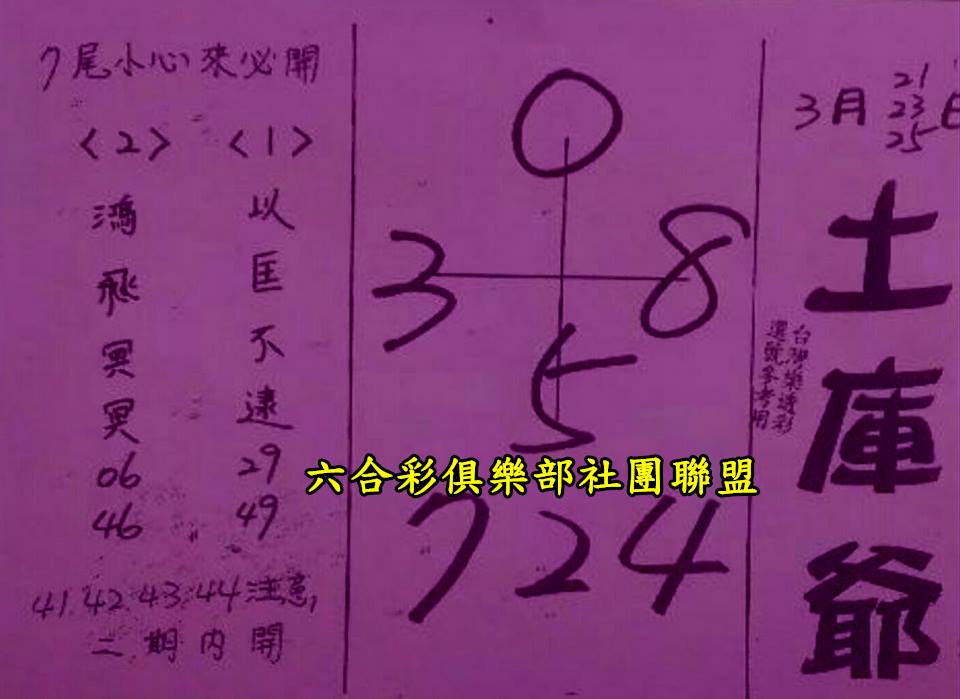 3月 21 23 25日
土庫爺
台聯樂透彩
選號參考用
0
3 8
5
7 2 4
六合彩俱樂部社團聯盟
7尾小心來必開
<1>
以匡不逮
29
49
<2>
鴻飛冥冥
06
46
41.42.43.44注意,
二期內開